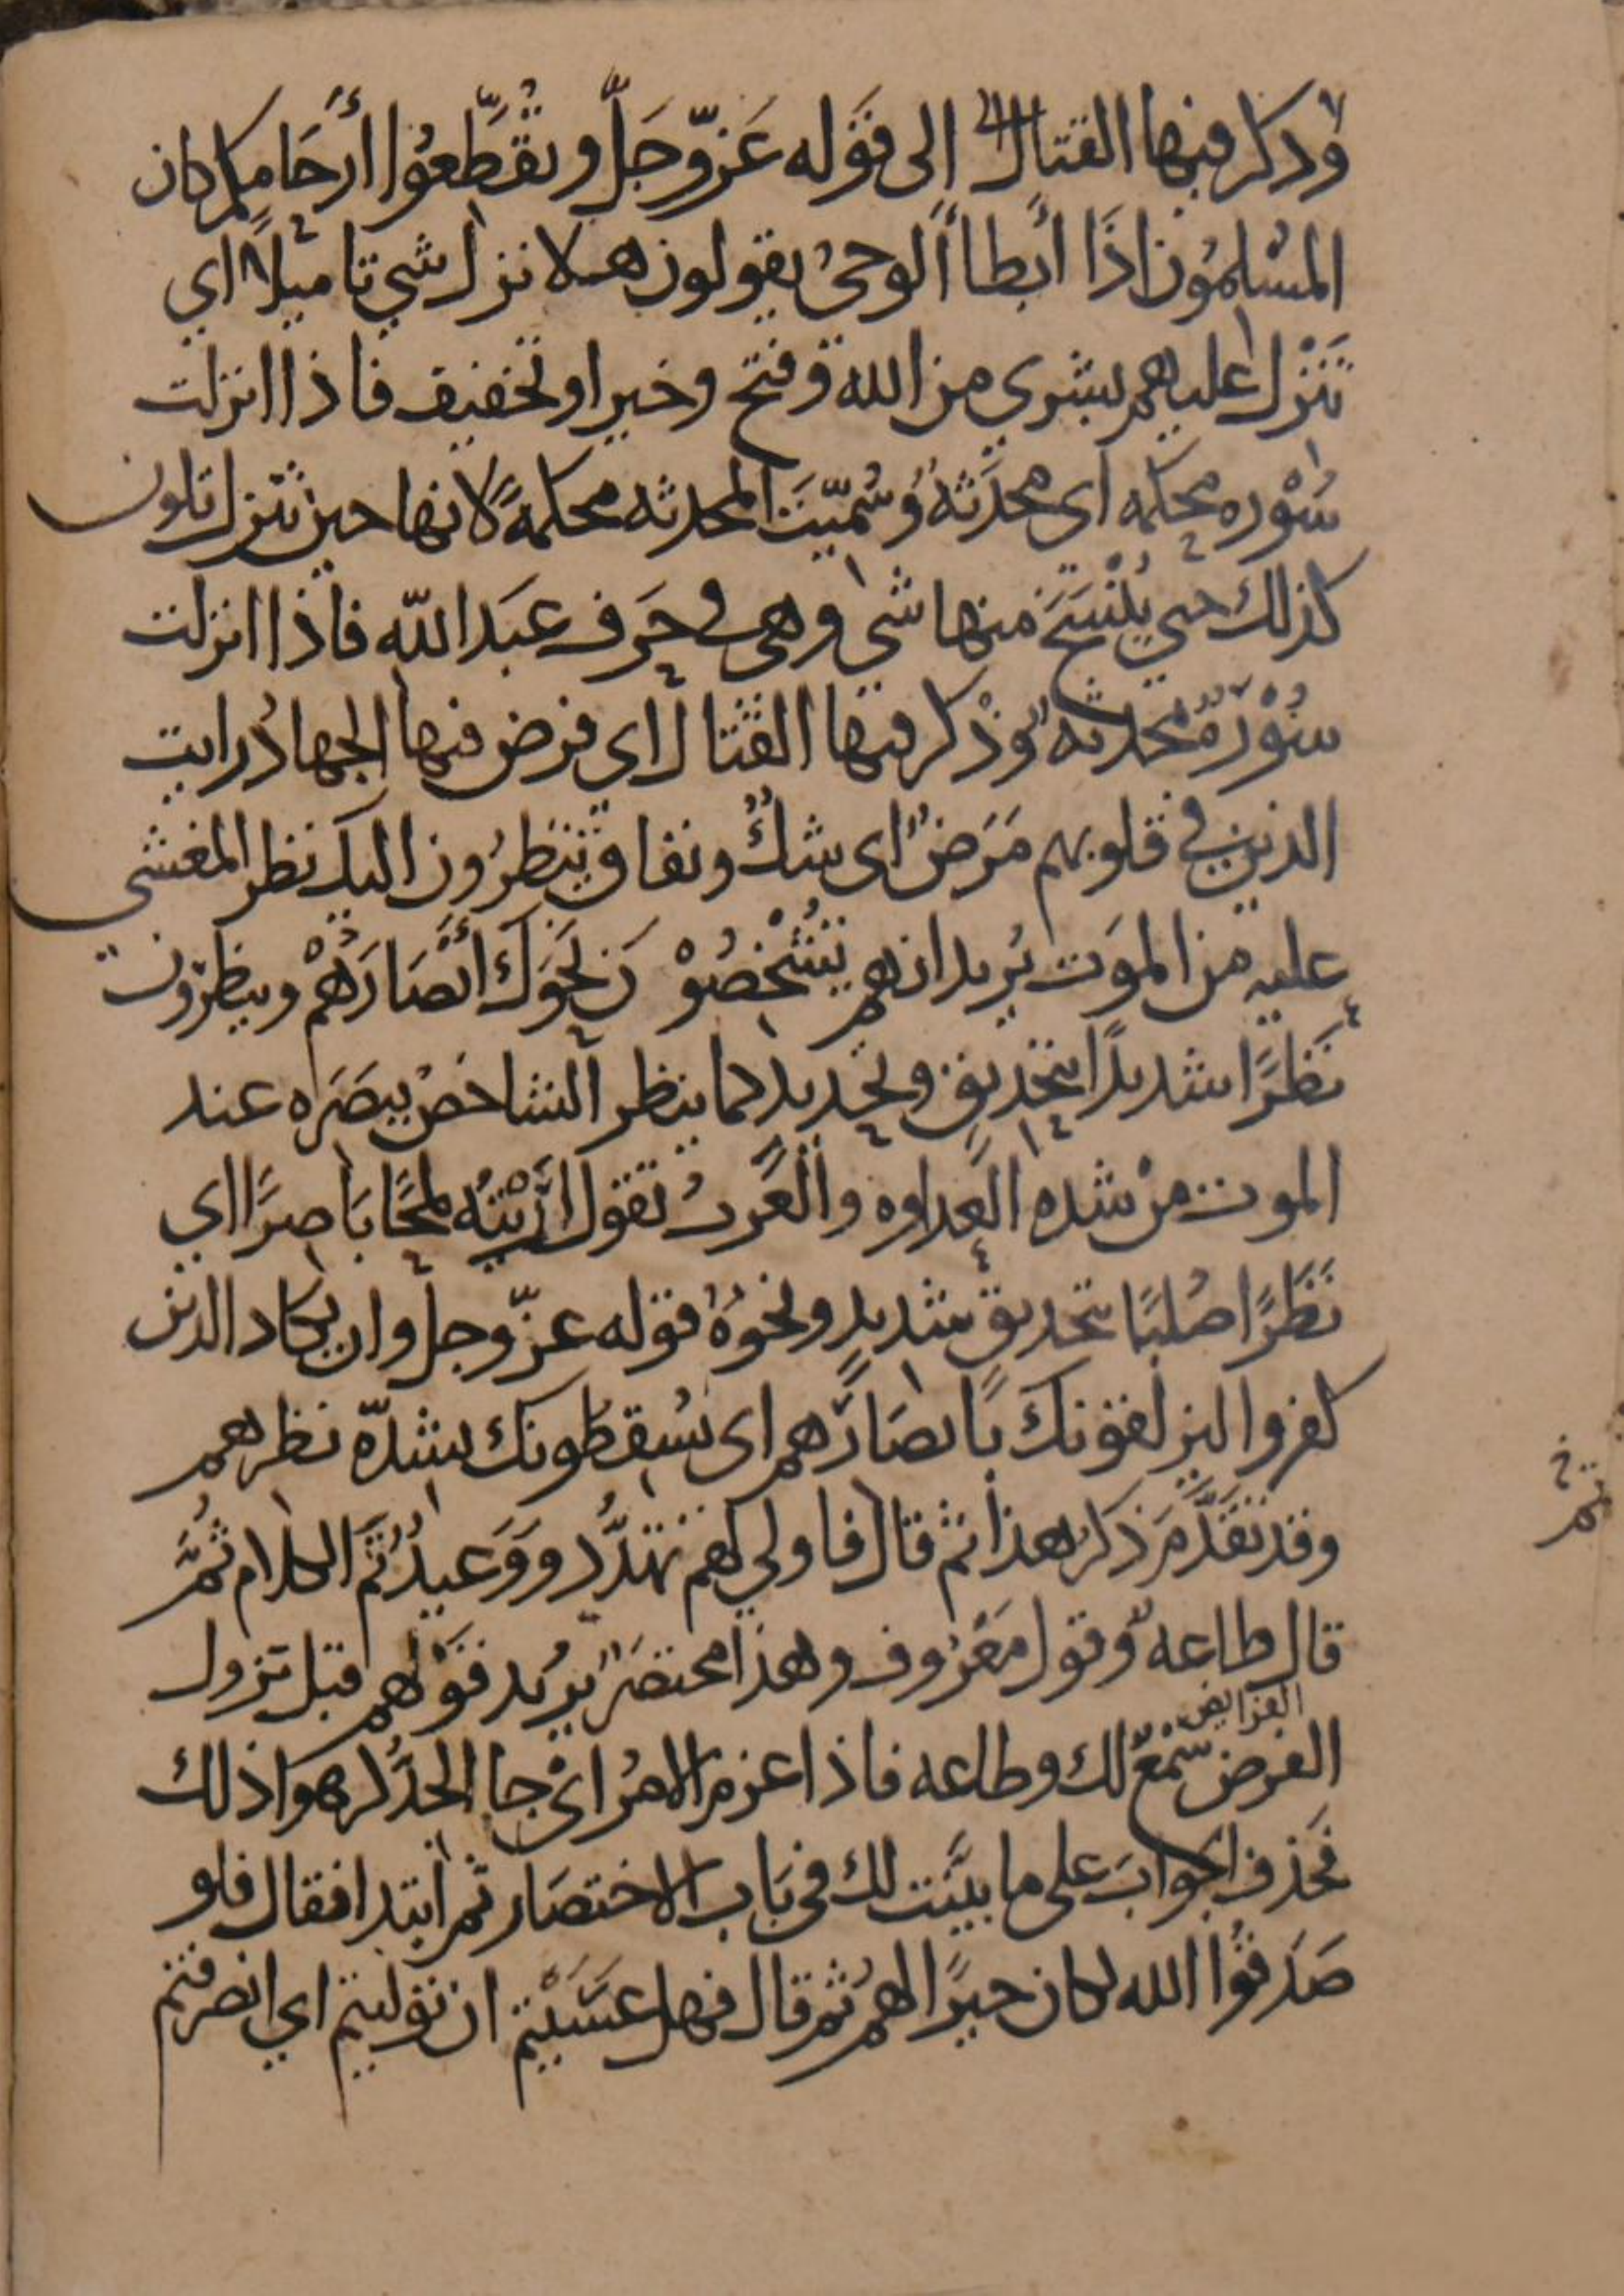 وذكر فيها القتال الى قوله عَزّ وجَلّ وتُقَطّعُوا أرْحَامكم كان
المسْلمُون اذَا أبطا ألوحىُ يقولون هلا نزل شي تاميلًا اي
تنزل عليهم بشري من الله وفتح وخير او تخفيف فاذا انزلت
سُوْره محكمه اى محدَثهٌ وسُمّيتَ المحدثه محكمةً لانها حين تنزل تكون
كذلك حتي يُنْسَخَ منها شي وهى في حَرف عبَد الله فاذا انزلت
سُوْرةٌ مُحْدثه وُذْكر فيها القتال اى فرض فيها الجهادُ رايت
الذين في قلوبهم مَرَضٌ اى شكٌ ونفاق ينظرُون اليك نظر المغشى
عليه من الموَت يُريد انهم يَشْخصُوْ ن نحوَك أبْصَارَهُمْ وينظرون
نَظرًا شديدًا بتحْديق وتحديد كما ينظر الشاخصْ ببصَره عند
الموت منْ شده العداوه والعَربُ تقول ارَيْتهُ لمحًا باصرًا اي
نَظَرًا صُلبًا بتحديق شديد ونحوُهُ قوله عزّ وجل وان يكاد الذين
كفروا ليزلقونك بابصَارهم اى يُسقطونك بشدّة نظرهم
وقد تقدَّم ذكر هذا ثم قال فاولي لهم تهدُّد ووَعيدٌ تَم الكلام ثُمَّ
قال طاعه وقول مَعْرُوف وهذا مختصَرٌ يريد قوْلهم قبل نزول
الفرايض
الفرض سَمْعٌ لك وطاعه فاذا عزم الامُر اىْ جا الجدُّ كرهوا ذلك
فحَذف الجوابَ على ما بيّنت لك في بَاب الاختصَار ثم ابتدا فقال فلو
صَدَقُوا الله لكان خيرًا لهمُ ثم قال فهل عسَيْتم ان توليتم اي انصرفتم